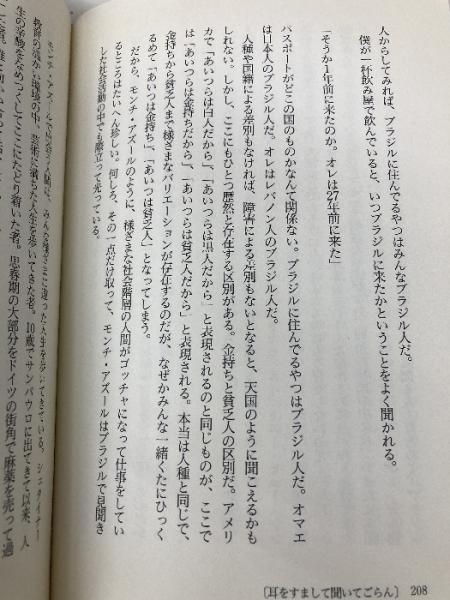 人からしてみれば、ブラジルに住んでるやつはみんなブラジル人だ。
僕が一杯飲み屋で飲んでいると、いつブラジルに来たかということをよく聞かれる。
「そうか1年前に来たのか。オレは27年前に来た」
パスポートがどこの国のものかなんて関係ない。ブラジルに住んでるやつはブラジル人だ。オマエ
は日本人のブラジル人だ。オレはレバノン人のブラジル人だ。
人種や国籍による差別もなければ、障害による差別もないとなると、天国のように聞こえるかも
しれない。しかし、ここにもひとつ歴然と存在する区別がある。金持ちと貧乏人の区別だ。アメリ
カで「あいつらは白人だから」、「あいつらは黒人だから」と表現されるのと同じものが、ここで
は「あいつらは金持ちだから」、「あいつらは貧乏人だから」と表現される。本当は人種と同じで、
金持ちから貧乏人まで様ざまなバリエーションが存在するのだが、なぜかみんな一緒くたにひっく
るめて「あいつは金持ち」、「あいつは貧乏人」となってしまう。
だから、モンチ・アズールのように、様ざまな社会階層の人間がゴッチャになって仕事をしてい
るところはたいへん珍しい。何しろ、その一点だけ取って、モンチ・アズールはブラジルで見聞き
した社会活動の中でも際立って光っている。
モンチ・アズールで出会う人間は、みんな様ざまに違った人生を歩いてきている。シュタイナー
教師の流れの中、芸術に満ちた人生を歩いてきた者。10歳でサンパウロに出てきて以来、人
生の辛酸をなめつくしてここにたどり着いた者。思春期の大部分をドイツの街角で麻薬を売って過
208
［耳をすまして聞いてごらん］